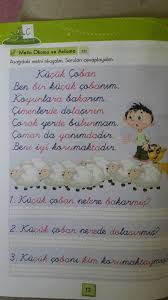 C
Metin Okuma ve Anlama
Aşağıdaki metni okuyalım. Soruları cevaplayalım.
Küçük Çoban
Ben bir küçük çobanım.
Koyunlara bakarım.
Çimenlerde dolaşırım
Çorak yerde bulunmam.
Çomar da yanımdadır.
Beni iyi korumaktadır.
1. Küçük çoban nelere bakarmış?
2. Küçük çoban nerede dolaşırmış?
3. Küçük çobanı kim korumaktaymış?
13